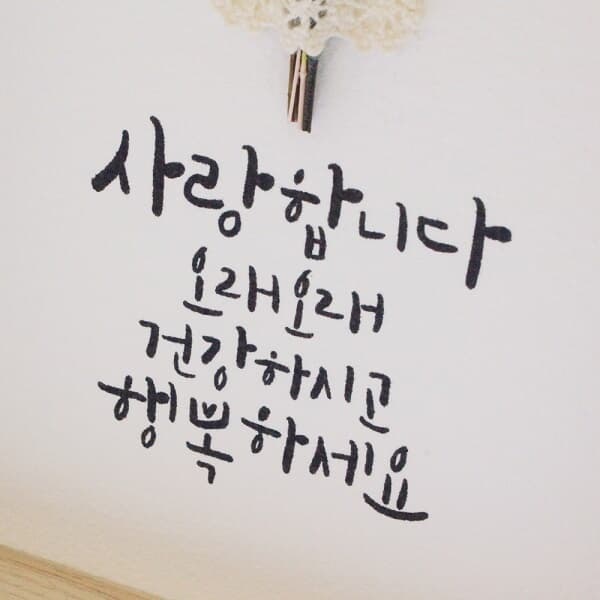 사랑합니다
오래오래
건강하시고
행복하세요